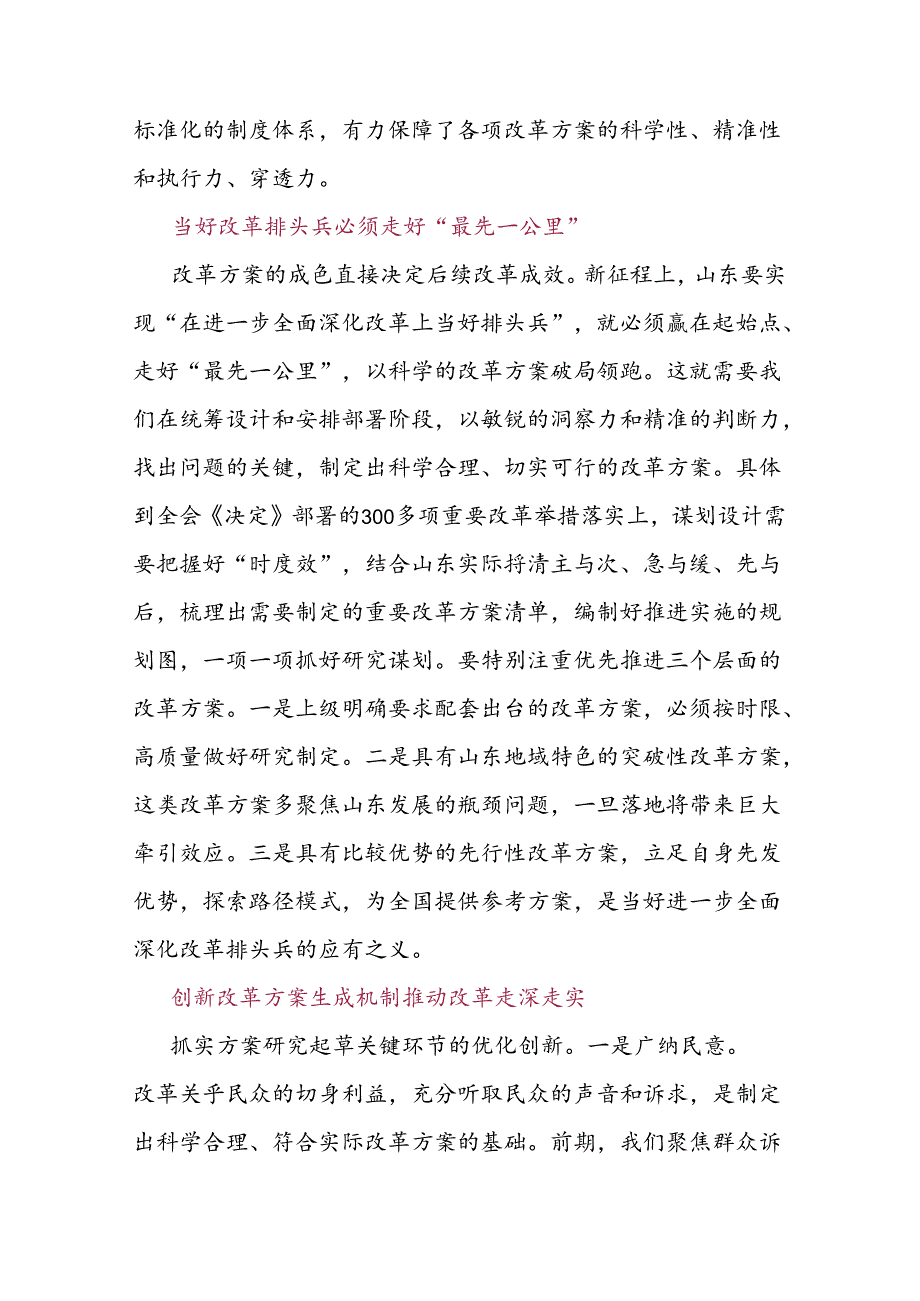 标准化的制度体系，有力保障了各项改革方案的科学性、精准性
和执行力、穿透力。
当好改革排头兵必须走好“最先一公里”
改革方案的成色直接决定后续改革成效。新征程上，山东要实
现“在进一步全面深化改革上当好排头兵”，就必须赢在起始点、
走好“最先一公里”，以科学的改革方案破局领跑。这就需要我
们在统筹设计和安排部署阶段，以敏锐的洞察力和精准的判断力，
找出问题的关键，制定出科学合理、切实可行的改革方案。具体
到全会《决定》部署的300多项重要改革举措落实上，谋划设计需
要把握好“时度效”，结合山东实际捋清主与次、急与缓、先与
后，梳理出需要制定的重要改革方案清单，编制好推进实施的规
划图，一项一项抓好研究谋划。要特别注重优先推进三个层面的
改革方案。一是上级明确要求配套出台的改革方案，必须按时限、
高质量做好研究制定。二是具有山东地域特色的突破性改革方案，
这类改革方案多聚焦山东发展的瓶颈问题，一旦落地将带来巨大
牵引效应。三是具有比较优势的先行性改革方案，立足自身先发
优势，探索路径模式，为全国提供参考方案，是当好进一步全面
深化改革排头兵的应有之义。
创新改革方案生成机制推动改革走深走实
抓实方案研究起草关键环节的优化创新。一是广纳民意。
改革关乎民众的切身利益，充分听取民众的声音和诉求，是制定
出科学合理、符合实际改革方案的基础。前期，我们聚焦群众诉